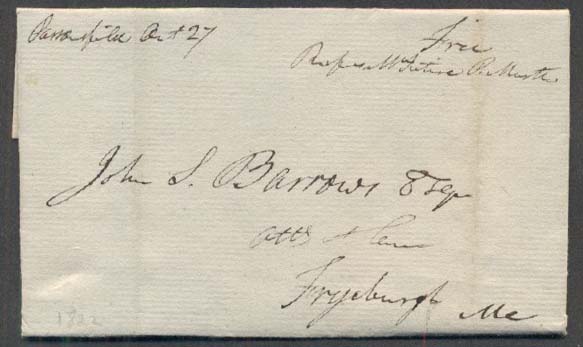 Parsonsfield Oct 27
Free
Rufus McIntire P. Master
John S. Barrows Esqr
Atty at Law
Fryeburgh Me
1822